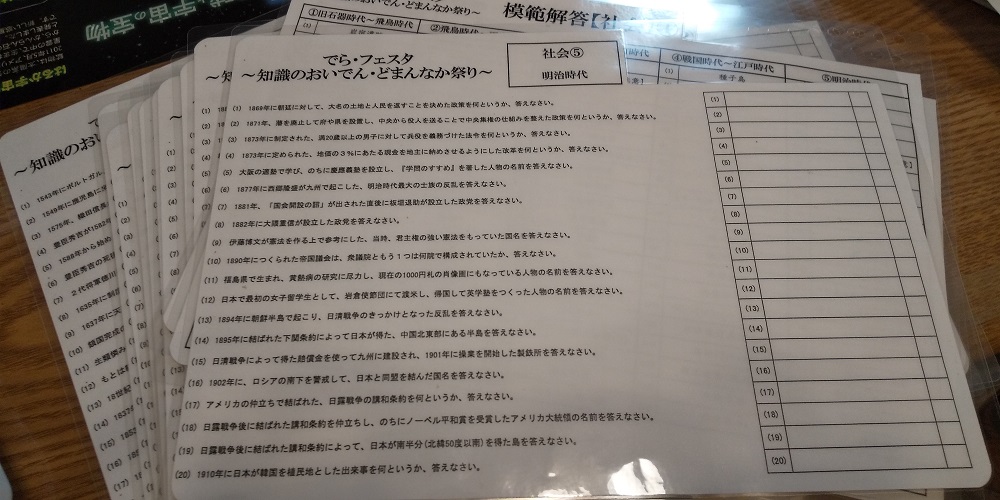 模範解答【社
①旧石器時代～飛鳥時代
②飛鳥時
④戦国時代～江戸時代
種子島
⑤明治時代
でら・フェスタ
～知識のおいでん・どまんなか祭り～
社会⑤
明治時代
(1) 1869年に朝廷に対して、大名の土地と人民を返すことを決めた政策を何というか、答えなさい。
(2) 1871年、藩を廃止して府や県を設置し、中央から役人を送ることで中央集権の仕組みを整えた政策を何というか、答えなさい。
(3) 1873年に制定された、満20歳以上の男子に対して兵役を義務づけた法令を何というか、答えなさい。
(4) 1873年に定められた、地価の3%にあたる現金を地主に納めさせるようにした改革を何というか、答えなさい。
(5) 大阪の適塾で学び、のちに慶應義塾を設立し、『学問のすすめ』を著した人物の名前を答えなさい。
(6) 1877年に西郷隆盛が九州で起こした、明治時代最大の士族の反乱を答えなさい。
(7) 1881年、「国会開設の詔」が出された直後に板垣退助が設立した政党を答えなさい。
(8) 1882年に大隈重信が設立した政党を答えなさい。
(9) 伊藤博文が憲法を作る上で参考にした、当時、君主権の強い憲法をもっていた国名を答えなさい。
(10) 1890年につくられた帝国議会は、衆議院ともう1つは何院で構成されていたか、答えなさい。
(11) 福島県で生まれ、黄熱病の研究に尽力し、現在の1000円札の肖像画にもなっている人物の名前を答えなさい。
(12) 日本で最初の女子留学生として、岩倉使節団にて渡米し、帰国して英学塾をつくった人物の名前を答えなさい。
(13) 1894年に朝鮮半島で起こり、日清戦争のきっかけとなった反乱を答えなさい。
(14) 1895年に結ばれた下関条約によって日本が得た、中国北東部にある半島を答えなさい。
(15) 日清戦争によって得た賠償金を使って九州に建設され、1901年に操業を開始した製鉄所を答えなさい。
(16) 1902年に、ロシアの南下を警戒して、日本と同盟を結んだ国名を答えなさい。
(17) アメリカの仲立ちで結ばれた、日露戦争の講和条約を何というか、答えなさい。
(18) 日露戦争後に結ばれた講和条約を仲立ちし、のちにノーベル平和賞を受賞したアメリカ大統領の名前を答えなさい。
(19) 日露戦争後に結ばれた講和条約によって、日本が南半分(北緯50度以南)を得た島を答えなさい。
(20) 1910年に日本が韓国を植民地とした出来事を何というか、答えなさい。
(1)
(2)
(3)
(4)
(5)
(6)
(7)
(8)
(9)
(10)
(11)
(12)
(13)
(14)
(15)
(16)
(17)
(18)
(19)
(20)
～知識のおい
(1) 1543年にポルトガル
(2) 1549年に鹿児島に
(3) 1575年、織田信長
(4) 豊臣秀吉が1582
(5) 1588年から始め
(6) 豊臣秀吉の死
(7) 2代将軍徳川
(8) 1635年に制
(9) 1637年に天
(10) 鎖国完成
(11) 生類憐み
(12) もとは
(13) 18世紀
(14) 1837
(15)
(16)
(17)
はるか宇宙